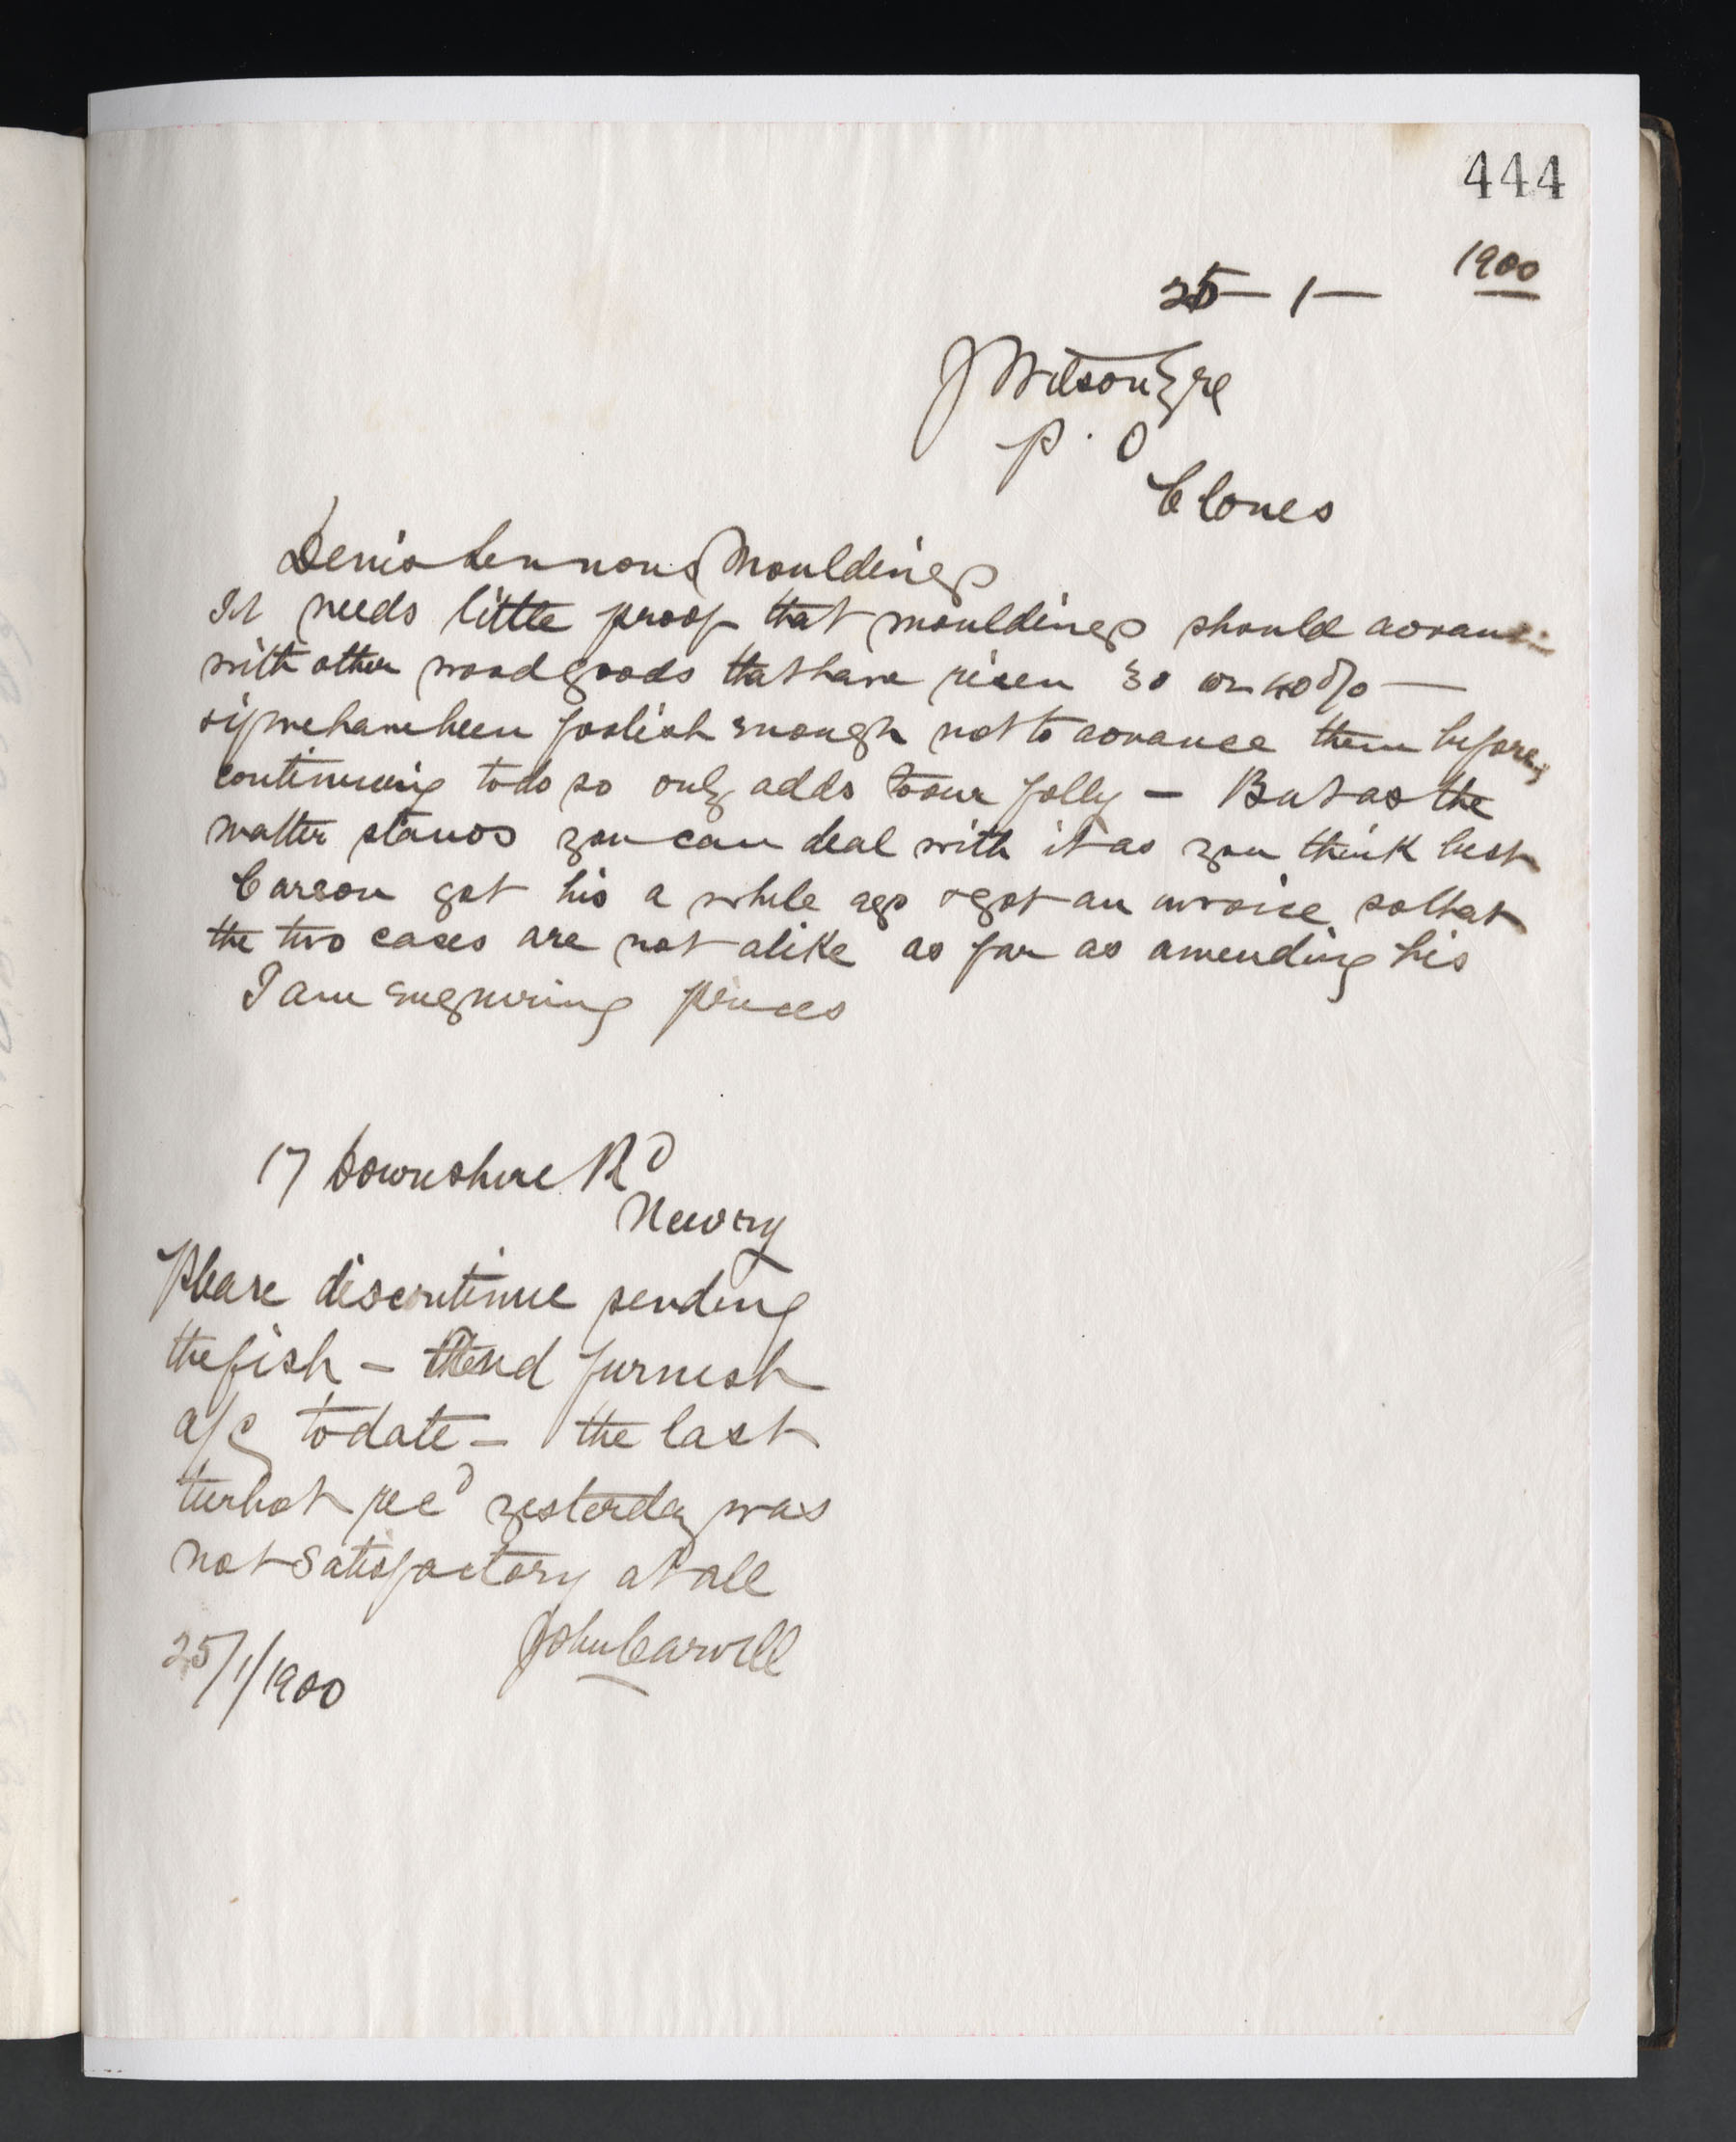 444
25 - 1 - 1900
J Wilson Esq
P. O
Clones
Denis Lennons Mouldings
It needs little proof that mouldings should advance
with other wood goods that have risen 30 or 40% —
& if we have been foolish enough not to advance them before,
continueing to do so only adds to our folly — But as the
matter stands you can deal with it as you think best
Carson got his a while ago & got an invoice so that
the two cases are not alike as far as amending his
I am enquiring prices
17 Downshire Rd
Newry
Please discontinue sending
the fish — and furnish
a/c to date — the last
turbot recd yesterday was
not satisfactory at all
John Carvill
25/1/1900